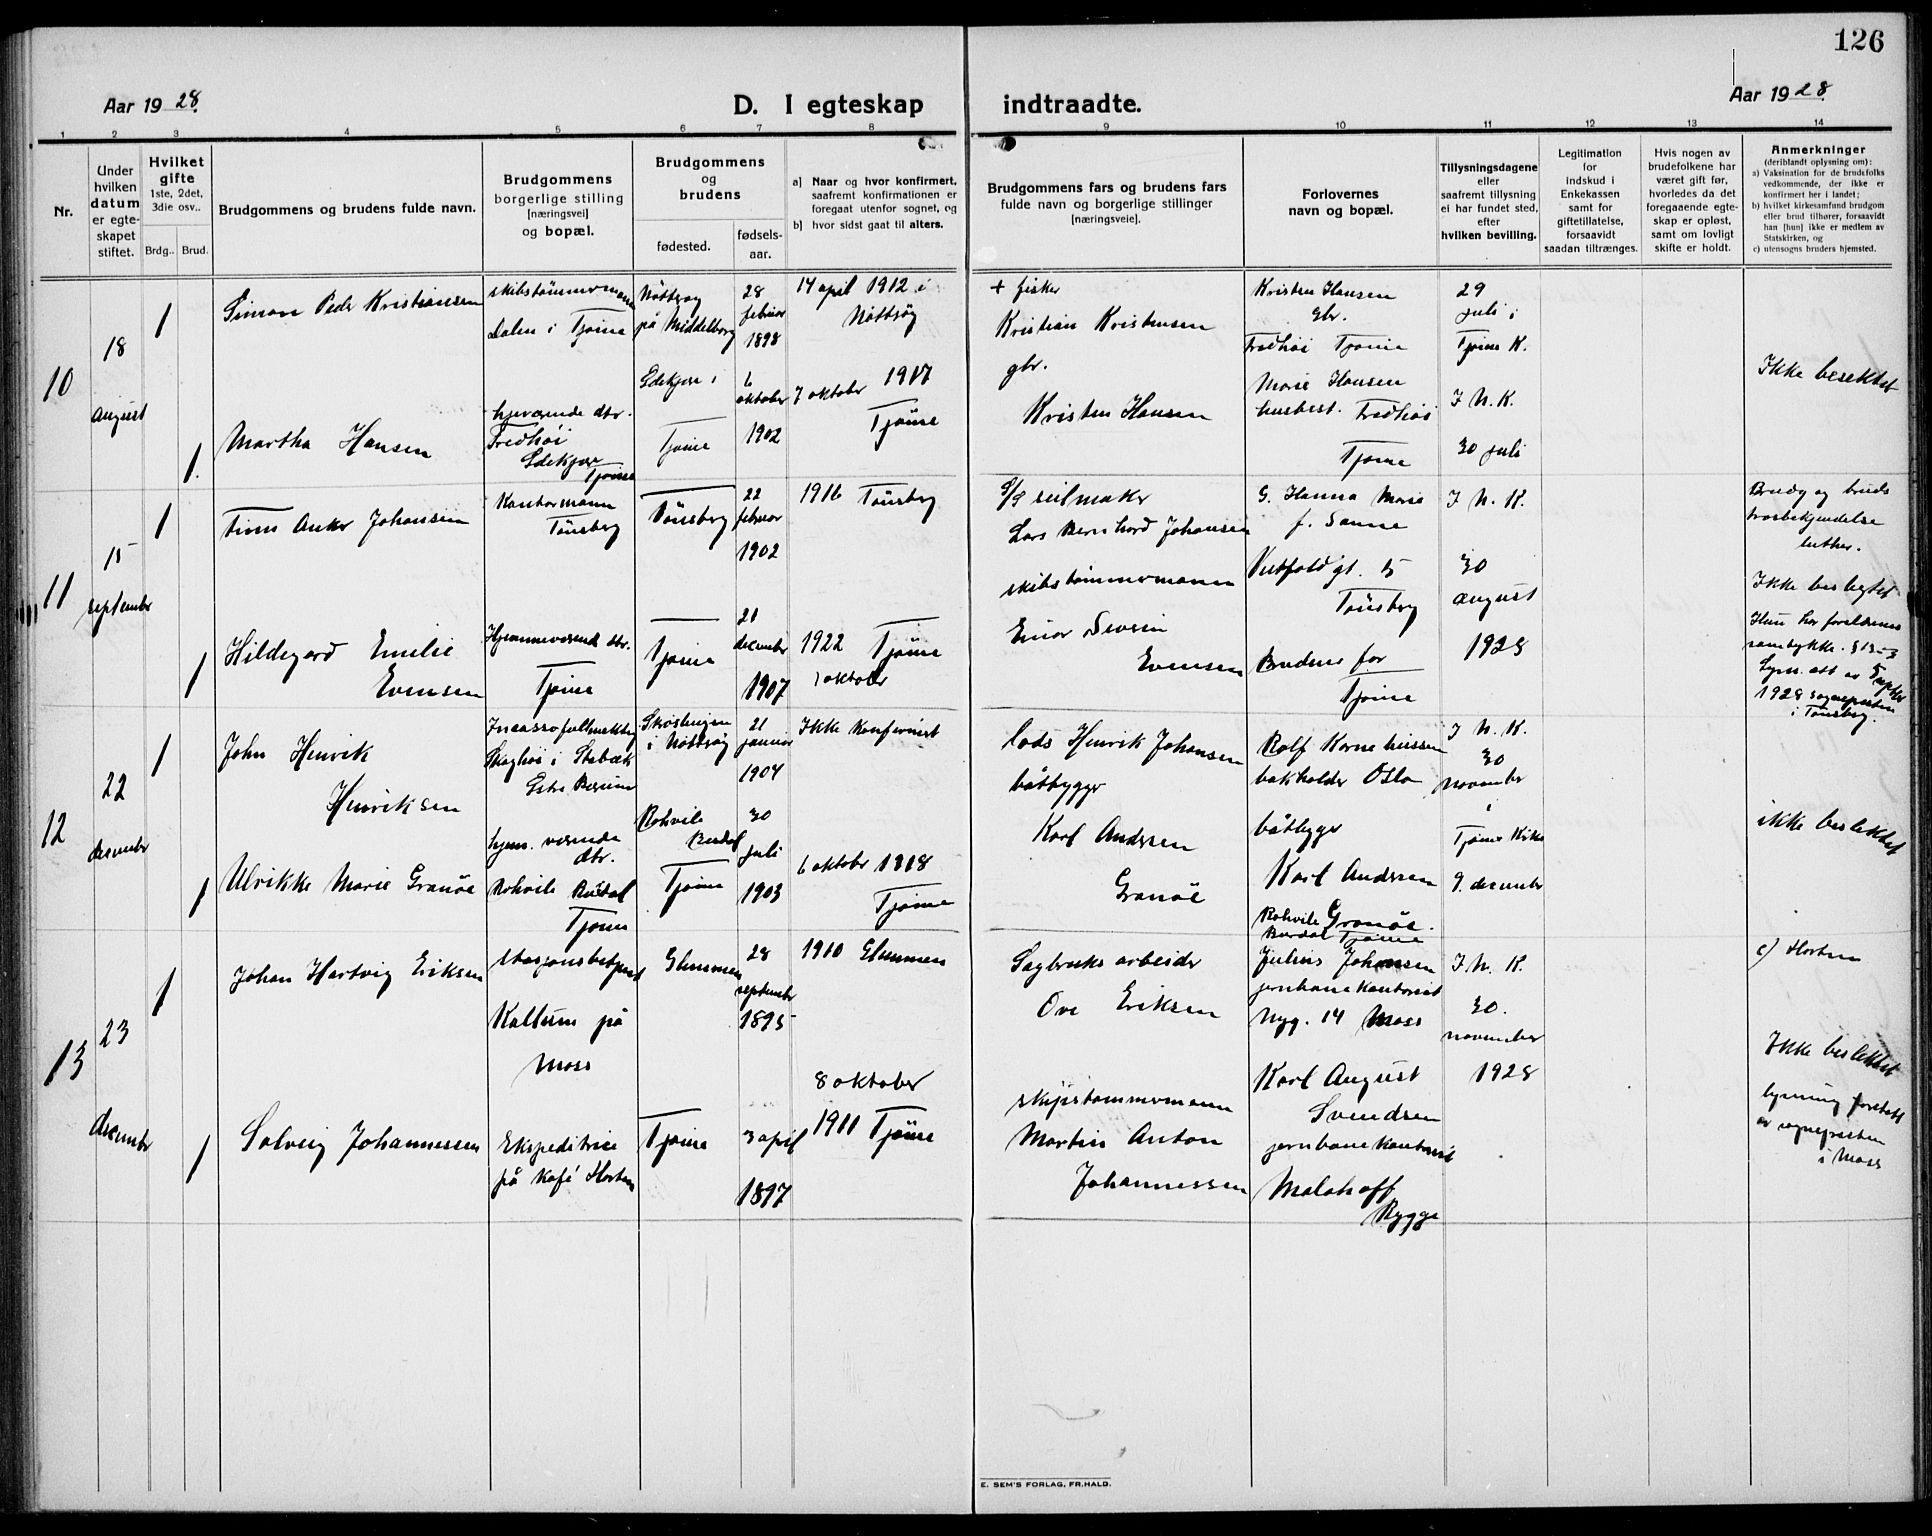 126
Aar 1928.
D. I egteskap indtraadte.
Aar 1928.
1 2 3 4 5 6 7 8 9 10 11 12 13 14
Nr.
Under
hvilken
datum
er egte-
skapet
stiftet.
Hvilket
gifte
1ste, 2det,
3die osv..
Brdg.. Brud.
Brudgommens og brudens fulde navn.
Brudgommens
borgerlige stilling
[næringsvei]
og bopæl.
Brudgommens
og
brudens
fødested.
fødsels-
aar.
a) Naar og hvor konfirmert,
saafremt konfirmationen er
foregaat utenfor sognet, og
b) hvor sidst gaat til alters.
Brudgommens fars og brudens fars
fulde navn og borgerlige stillinger
[næringsveie].
Forlovernes
navn og bopæl.
Tillysningsdagene
eller
saafremt tillysning
ei har fundet sted,
efter
hvilken bevilling.
Legitimation
for
indskud i
Enkekassen
samt for
giftetillatelse,
forsaavidt
saadan tiltrænges.
Hvis nogen av
brudefolkene har
været gift før,
hvorledes da det
foregaaende egte-
skap er opløst,
samt om lovligt
skifte er holdt.
Anmerkninger
(deriblandt oplysning om):
a) Vaksination for de brudefolks
vedkommende, der ikke er
konfirmert her i landet;
b) hvilket kirkesamfund brudgom
eller brud tilhører, forsaavidt
han [hun] ikke er medlem av
Statskirken, og
c) utensogns bruders hjemsted.
10
18
august
1
Simon Peder Kristiansen
skibstømmermann
Dalen i Tjøme
Nøtterøy
på Middelborg
28
februar
1898
14 april 1912 i
Nøtterøy
+ fisker
Kristian Kristensen
Kristen Hansen
gbr.
Fredhøi Tjøme
29
juli i
Tjøme K.
1.
Martha Hansen
hjeværende dtr.
Fredhøi
Edekjær
Tjøme
Edekjær i
Tjøme
6
oktober
1902
7 oktober 1917
Tjøme
gbr.
Kristen Hansen
Marie Hansen
husbest. Fredhøi
Tjøme
I N. K.
30 juli
Ikke beslektet
11
15
september
1
Finn Anker Johansen
Kontormann
Tönsberg
Tönsberg
22
februar
1902
1916 Tönsberg
seilmaker
Lars Bernhard Johansen
G. Hanna Marie
f. Sanne
Vestfoldgt. 15
Tönsberg
I N. K.
30
august
1928
Brudg og bruds
trosbekjendelse
luther.
Ikke beslegtet
1
Hildegard Emilie
Evensen
Hjemmeværend dtr.
Tjøme
Tjøme
21
december
1907
1922 Tjøme
1 oktober
skibstømmermann
Einar Severin
Evensen
Brudens far
Tjøme
Hun har forældrenes
samtykke.
Lysn. att av 5 septbr
1928 sogneprsten
i Tönsberg.
12
22
desember
1
John Henrik
Henriksen
Incassofullmektig
Skoghøi i Stabæk
Østre Bærum
i Nøtterøy
21
januar
1904
Ikke konfirmert
lods Henrik Johansen
Rolf Korneliussen
bokholder Oslo
I N. K.
30
november
i
Tjøme Kirke
1
Ulrikke Marie Granöe
hjem. værende
dtr.
Rohvile Burdal
Tjøme
Rohvile
Burdal
Tjøme
30
juli
1903
6 oktober 1918
Tjøme
båtbygger
Karl Andersen
Granöe
båtbygger
Karl Andersen
Granöe.
Rohvile
Burdal Tjøme
9. desember
ikke beslektet
13
23
desember
1
Johan Hartvig Eriksen
stasjonsbetjent
Kallum på
Moss
Glemmen
28
september
1895
1910 Glemmen
Sagbruks arbeider
Ove Eriksen
Julius Johansen
jernbanekontorist
Nyg. 14 Moss
I N. K.
30.
november
1928
c) Horten
Ikke beslektet
1
Solveig Johannessen
Ekspeditrice
på Kafé Horten
Tjøme
3 april
1897
8 oktober
1911 Tjøme
skipstømmermann
Martin Anton
Johannessen
Karl August
Svendsen
jernbanekontorist
Malahoff
Rygge
lysning foretatt
av sogneprsten
i Moss
E. SEM'S FORLAG, FR.HALD.